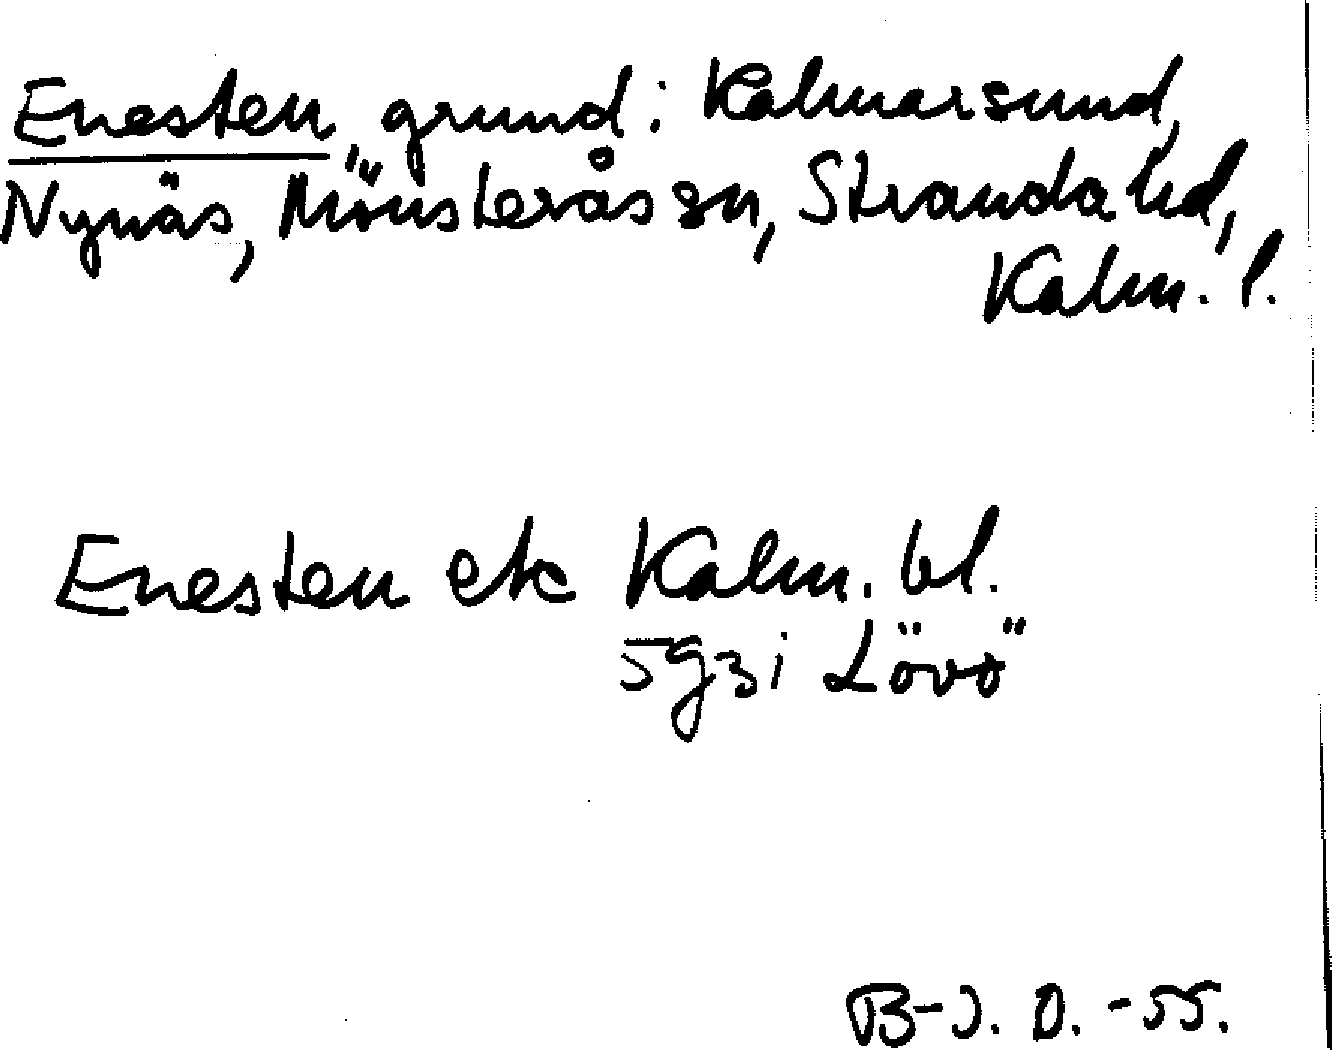 Enesten, grund: Kalmarsund,
Nynäs, Mönsterås sn, Stranda hd,
Kalm. l.
Enesten ek Kalm. bl.
5g3i Lövö
B-J. O. -55.